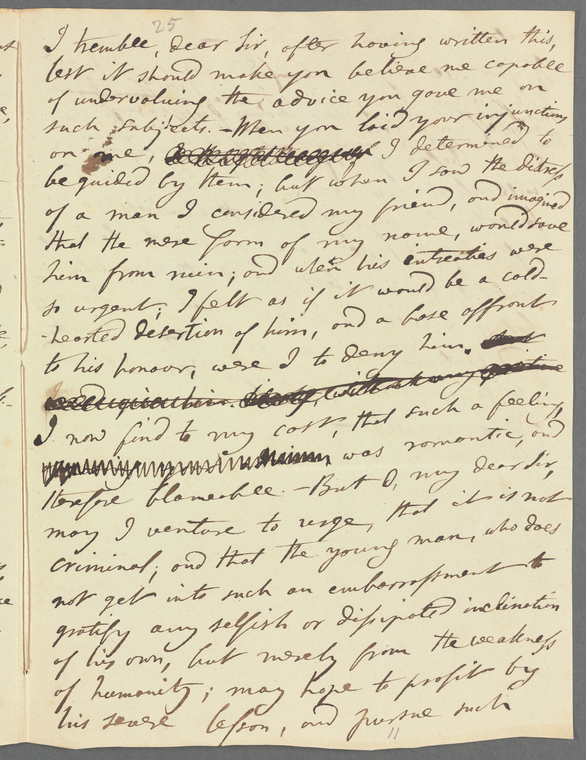 25
I tremble, dear Sir, after having written this,
lest it should make you believe me capable
of undervaluing the advice you gave me on
such subjects. - When you laid your injunctions
on me, I determined to
be guided by them; but when I saw the distress
of a man I considered my friend, and imagined
that the mere form of my name, would save
him from ruin; and when his intreaties were
so urgent; I felt as if it would be a cold-
-hearted desertion of him, and a base affront
to his honour, were I to deny him.
I now find to my cost, that such a feeling,
was romantic, and
therefore blameable. - But O, my dear Sir,
may I venture to urge, that it is not
criminal; and that the young man, who does
not get into such an embarrassment to
gratify any selfish or dissipated inclination
of his own, but merely from the weakness
of humanity; may hope to profit by
his severe lesson, and pursue such